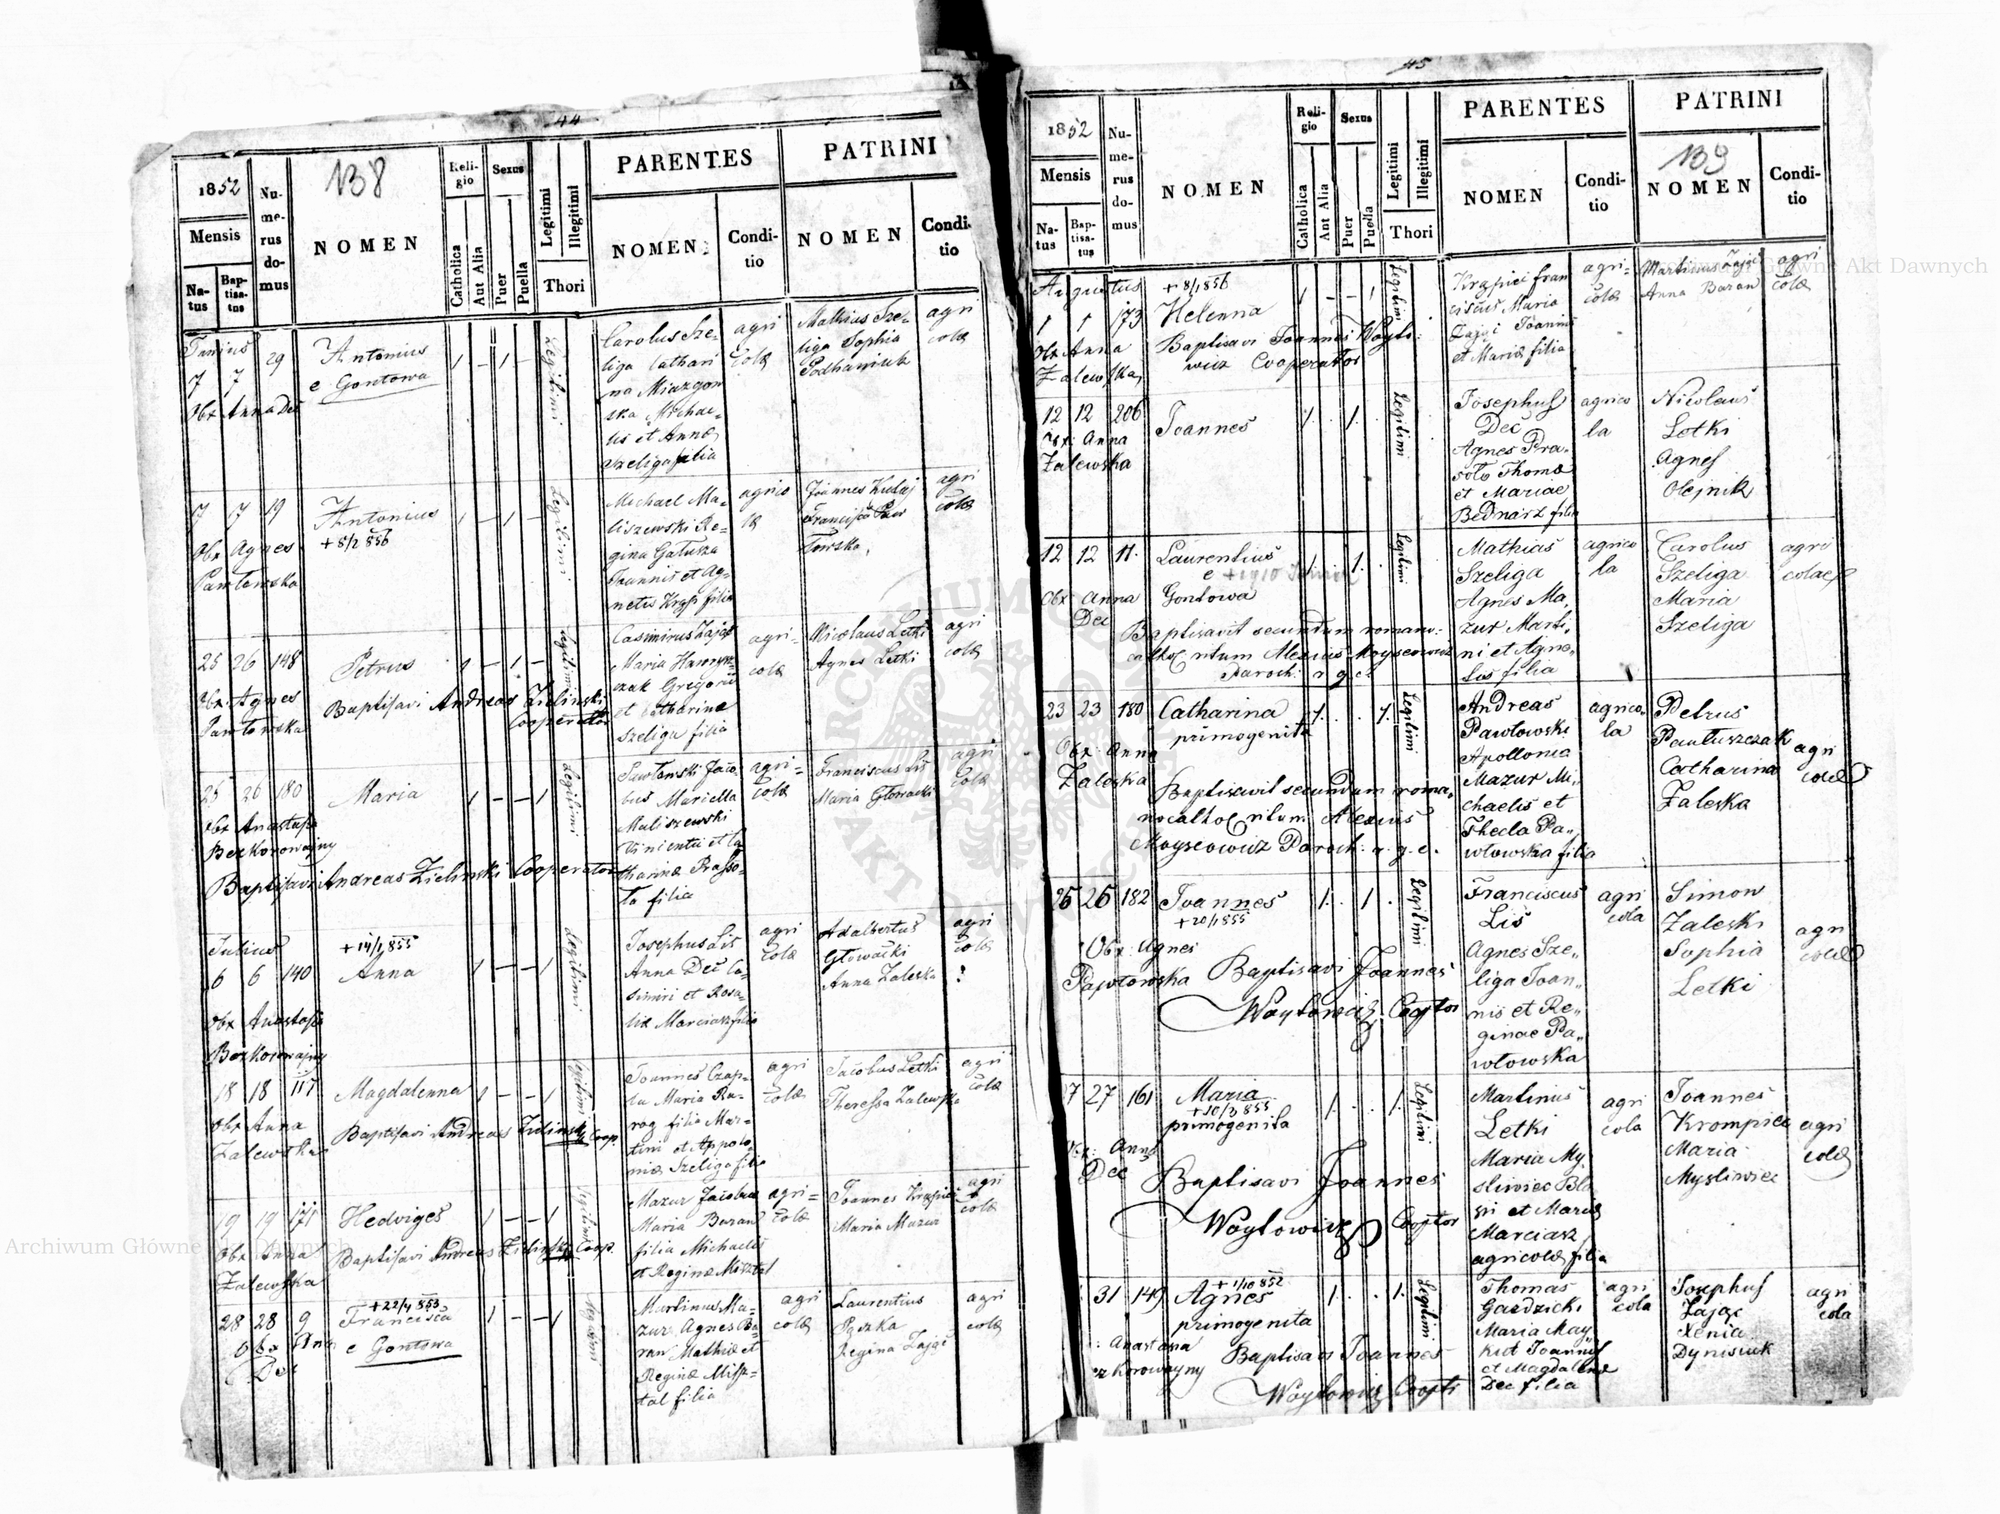 44
1852
138
Nu-
me-
rus
do-
mus
Mensis
Na-
tus
Bap-
tisa-
tus
NOMEN
Reli-
gio
Catholica
Aut Alia
Sexus
Puer
Puella
Legitimi
Illegitimi
Thori
PARENTES
NOMEN
Condi-
tio
PATRINI
NOMEN
Condi-
tio
Junius
7 7 29
Obx Anna Dec
Antonius
e Gontowa
1 – 1 –
Legitimi
Carolus Sze-
liga Cathari
na Miazgow
ska Michae-
lis et Annæ
Szeliga filia
agri
colæ
Mathias Sze-
liga Sophia
Podhaniuk
agri
colæ
17 17 19
Obx Agnes
Pawlowska
Antonius
+ 8/2 856
1 – 1 –
Legitimi
Michael Ma-
liszewski Re-
gina Galusza
Joannis et Ag-
netis filia
agrico
læ
Joannes
agri
colæ
25 26 148
Obx Agnes
Pawlowska
Petrus
Baptisavi Andreas Zielinski
Cooperator
1 – 1 –
Legitimi
Casimirus Zając
Maria Hawryn-
czak Gregorii
et Catharinæ
Szeliga filia
agri-
colæ
Nicolaus Letki
Agnes Letki
agri
colæ
25 26 180
Obx Anastasia
Bezkorowajny
Maria
Baptisavi Andreas Zielinski Cooperator
1 – – 1
Legitimi
Pawlowski Jaco
bus Mariella
Maliszewski
Vincentii et Ca
tharinæ Prasso-
ta filia
agri-
colæ
Franciscus Lis
Maria Glowacki
agri
colæ
Julius
6 6 140
Obx Anastasia
Bezkorowajny
+ 14/1 855
Anna
1 – – 1
Legitimi
Josephus Lis
Anna Dec Ca-
simiri et Rosa-
liæ Marciasz filia
agri
colæ
Adalbertus
Głowacki
Anna Zaleska
agri
colæ
18 18 117
Obx Anna
Zalewska
Magdalenna
Baptisavi Andreas Zielinski Coop.
1 – – 1
Legitimi
Joannes Czap-
la Maria Ra-
rog filia Mar-
tini et Appolo-
niæ Szeliga filia
agri
colæ
Jacobus Letki
Theressa Zalewska
agri
colæ
19 19 171
Obx Anna
Zalewska
Hedviges
Baptisavi Andreas Zielinski Coop.
1 – – 1
Legitimi
Mazur Jacobus
Maria Baran
filia Michaelis
et Reginæ Misztal
agri-
colæ
Joannes Krępici
Maria Mazur
agri
colæ
28 28 9
Obx Anna
Dec
+ 22/4 853
Francisca
e Gontowa
1 – – 1
Legitimi
Martinus Ma-
zur Agnes Ba-
ran Mathiæ et
Reginæ Missz-
tal filia
agri
colæ
Laurentius
Pęszka
Regina Zając
agri
colæ
45
1852
Nu-
me-
rus
do-
mus
Mensis
Na-
tus
Bap-
tisa-
tus
NOMEN
Reli-
gio
Catholica
Aut Alia
Sexus
Puer
Puella
Legitimi
Illegitimi
Thori
PARENTES
NOMEN
Condi-
tio
PATRINI
139
NOMEN
Condi-
tio
Augustus
1 1 173
Obx Anna
Zalewska
+ 8/1 856
Helenna
Baptisavi Joannes Woyto-
wicz Cooperator
1 – – 1
Legitimi
Krępici Fran
ciscus Maria
Zając Joannis
et Mariæ filia
agri-
colæ
Martinus Zając
Anna Baran
agri
colæ
12 12 206
Obx: Anna
Zalewska
Joannes
1 . 1 .
Legitimi
Josephus
Dec
Agnes Pra-
soło Thomæ
et Mariae
Bednarz filia
agrico
la
Nicolaus
Letki
Agnes
Olejnik
12 12 11.
Obx Anna
Dec
Laurentius
e
Gontowa
Baptisavit secundum romano:
cathol ritum Alexius Moyseowicz
Paroch: r. g. c.
1 . 1 .
Legitimi
Mathias
Szeliga
Agnes Ma-
zur Marti-
ni et Agne-
tis filia
agrico
la
Carolus
Szeliga
Maria
Szeliga
agri
colae
23 23 180
Obx: Anna
Zaleska
Catharina
primogenita
Baptisavit secundum roma-
no cathol ritum Alexius
Moyseowicz Paroch: r. g. c.
1 . . 1.
Legitimi
Andreas
Pawłowski
Apollonia
Mazur Mi-
chaelis et
Thecla Pa-
włowska filia
agrico-
la
Petrus
Pawłuszczak
Catharina
Zaleska
agri
colæ
26 26 182
Obx: Agnes
Pawłowska
Joannes
+ 20/1 855
Baptisavi Joannes
Woytowicz Cooptor
1 . 1 .
Legitimi
Franciscus
Lis
Agnes Sze-
liga Joan-
nis et Re-
ginae Pa-
włowska
agri
cola
Simon
Zaleski
Sophia
Letki
agri
colæ
27 27 161
Obx: Anna
Dec
Maria
+ 10/3 855
primogenita
Baptisavi Joannes
Woytowicz Cooptor
1 . . 1.
Legitimi
Martinus
Letki
Maria My-
śliwiec Bla
sii et Mariæ
Marciasz
agricolæ filia
agri
cola
Joannes
Krompiec
Maria
Myśliwiec
agri
colæ
31 149
: Anastasia
ezkorowayny
+ 1/10 852
Agnes
primogenita
Baptisavi Joannes
Woytowicz Coopt:
1 . . 1.
Legitimi
Thomas
Gaździcki
Maria May
kut Joannis
et Magdalenæ
Dec filia
agri
cola
Josephus
Zając
Xenia
Dynisiuk
agri
cola
Archiwum Główne Akt Dawnych
Archiwum Główne Akt Dawnych
ARCHIWUM GŁÓWNE AKT DAWNYCH